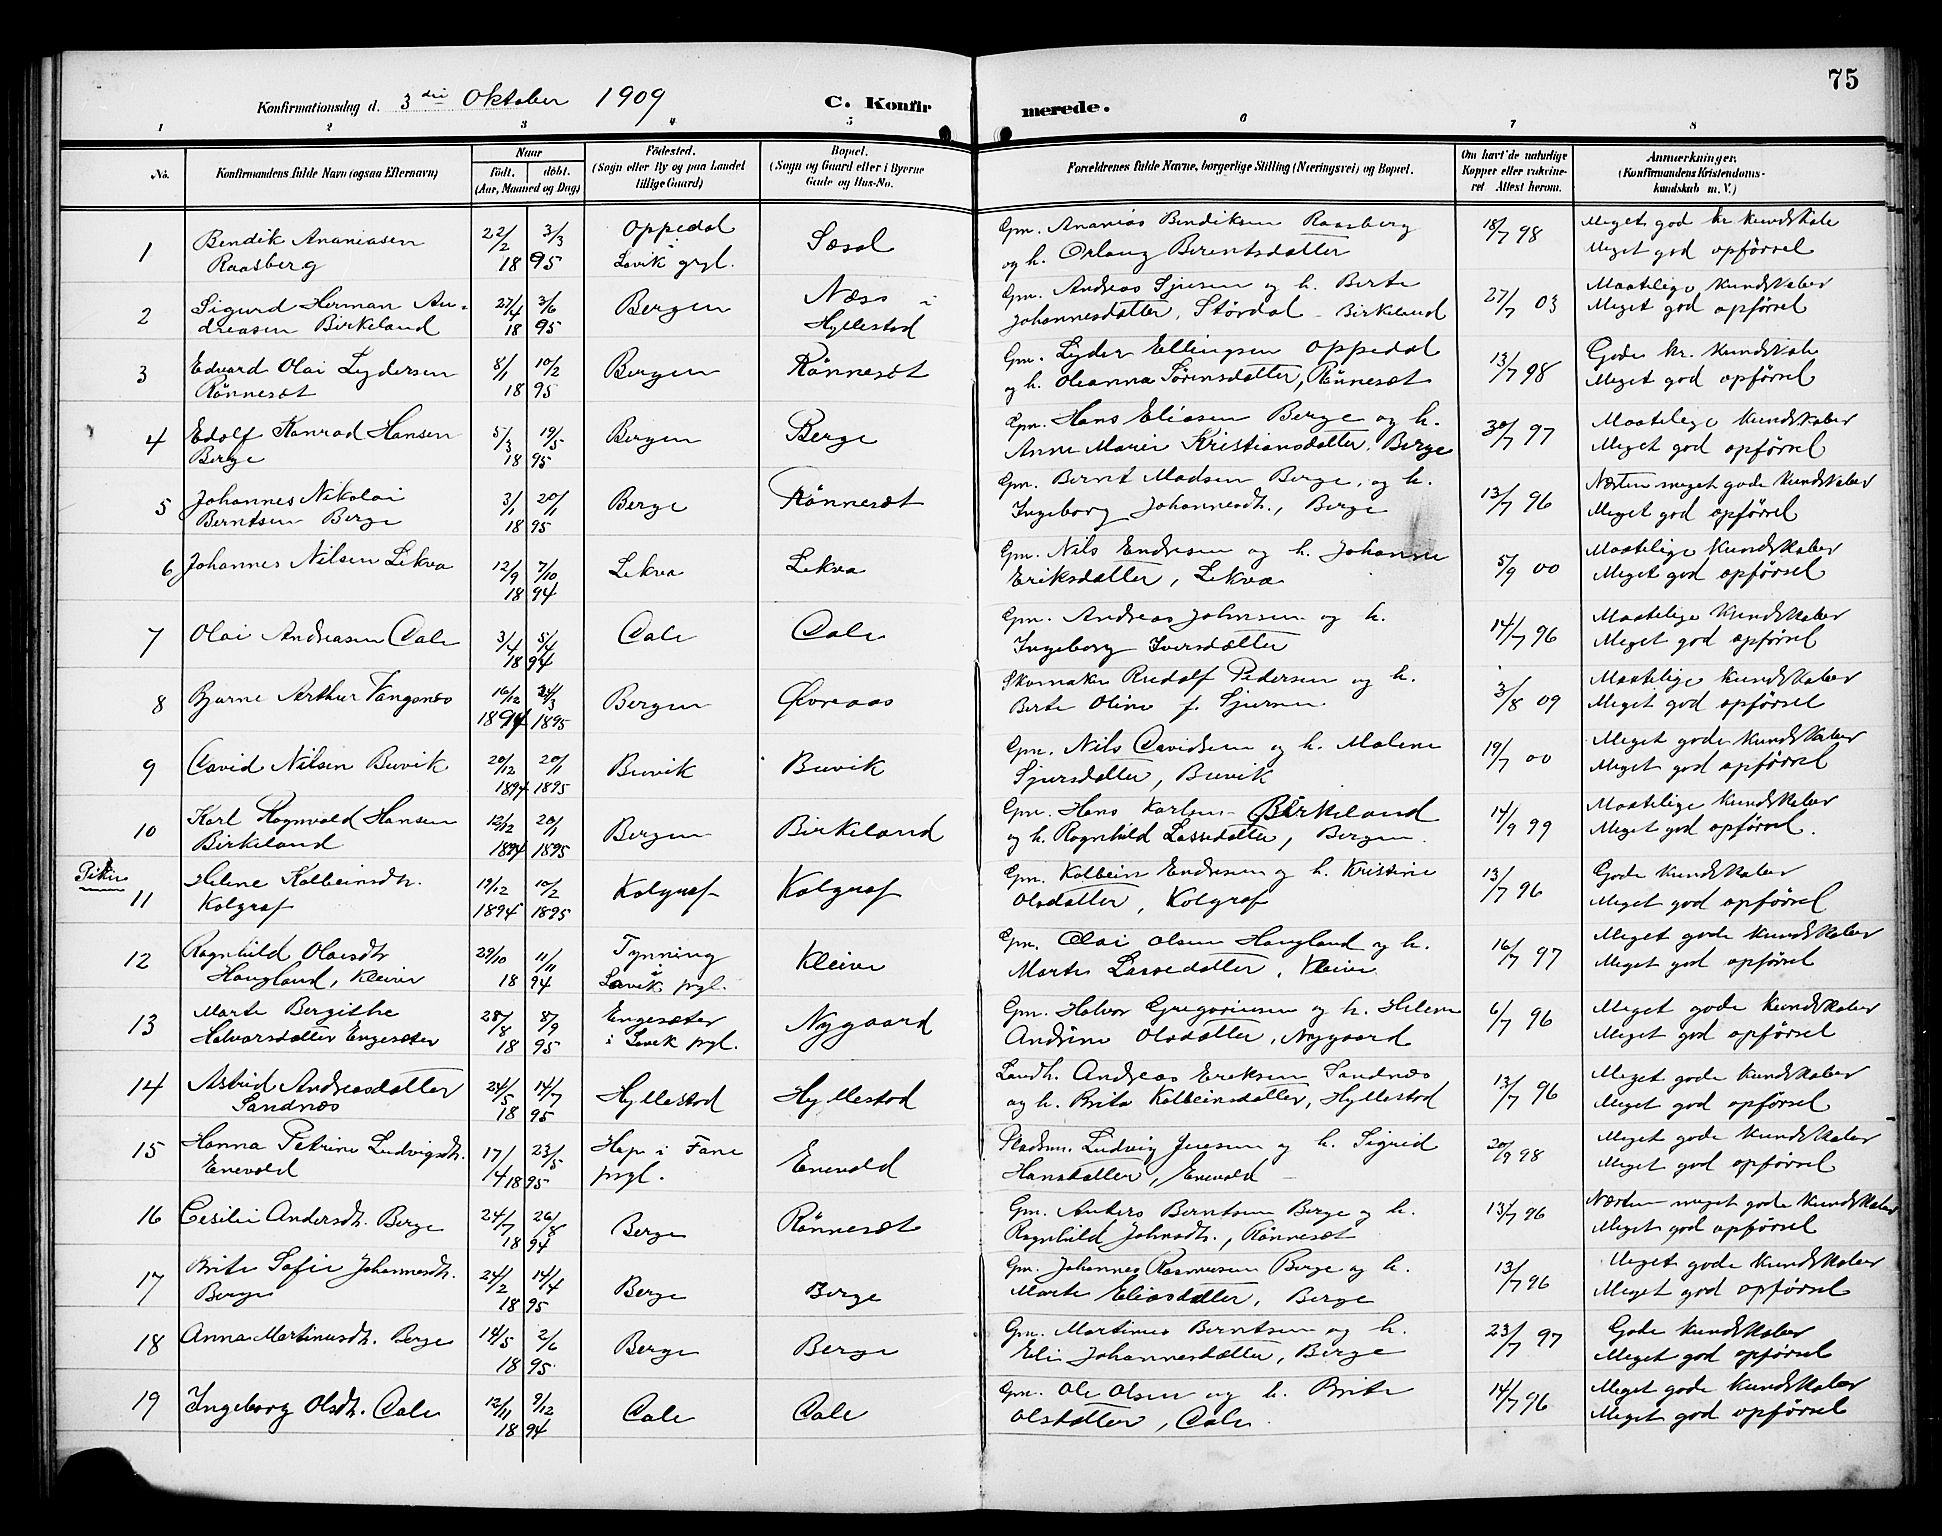 75
Konfirmationsdag d. 3die Oktober 1909 C. Konfirmerede.
1 2 3 4 5 6 7 8
No. Konfirmandens fulde Navn (ogsaa Efternavn) Naar födt. döbt. (Aar, Maaned og Dag) Födested. (Sogn eller By og paa Landet tillige Gaard) Bopæl. (Sogn og Gaard eller i Byerne Gade og Hus-No. Forældrenes fulde Navne, borgerlige Stilling (Næringsvei) og Bopæl. Om havt de naturlige Kopper eller vakcineret Attest herom. Anmærkninger. (Konfirmandens Kristendomskundskab m. V.)
1 Bendik Ananiasen Raasberg 22/2 3/3 1895 Oppedal i Lavik prgl. Sæsol Gm. Ananias Bendiksen Raasberg og h. Orlaug Berentsdatter 18/7 98 Meget god kr kundskab Meget god opførsel
2 Sigurd Herman Andreasen Birkeland 27/4 3/6 1895 Bergen Næss i Hyllestad Gm. Andreas Sjursen og h. Berte Johannesdatter, Stördal - Birkeland 27/7 03 Maatelige kundskaber Meget god opførsel
3 Edvard Olai Lydersen Rönneset 8/1 10/2 1895 Bergen Rönneset Gm. Lyder Ellingsen Oppedal og h. Oleanna Sørensdatter, Rönneset 13/7 98 Gode kr. kundskab Meget god opførsel
4 Edolf Konrad Hansen Berge 5/3 19/5 1895 Bergen Berge Gm. Hans Eliasen Berge og h. Anne Marie Kristiansdatter, Berge 30/7 97 Maatelige kundskaber Meget god opførsel
5 Johannes Nikolai Berntsen Berge 3/1 20/1 1895 Berge Rönneset Gm. Bernt Madsen Berge, og h. Ingeborg Johannesdt., Berge 13/7 96 Næsten meget gode kundskaber Meget god opførsel
6 Johannes Nilsen Lekva 12/9 7/10 1894 Lekva Lekva Gm. Nils Endresen og h. Johanne Eriksdatter, Lekva 5/9 00 Maatelige kundskaber Meget god opførsel
7 Olai Andreasen Dale 3/4 5/4 1894 Dale Dale Gm. Andreas Johnsen og h. Ingeborg Iversdatter 14/7 96 Maatelige kundskaber Meget god opførsel
8 Bjarne Arthur Vangsnes 16/12 1894 24/3 1895 Bergen Øvreaas Skomaker Rudolf Pedersen og h. Berte Oline f. Sjursen 3/8 09 Maatelige kundskaber Meget god opførsel
9 David Nilsen Buvik 20/12 1894 20/1 1895 Buvik Buvik Gm. Nils Davidsen og h. Malene Sjursdatter, Buvik 19/7 00 Meget gode kundskaber Meget god opførsel
10 Karl Ragnvald Hansen Birkeland 12/12 1894 20/1 1895 Bergen Birkeland Gm. Hans Karlsen Birkeland og h. Ragnhild Lassedatter, Bergen. 14/9 99 Maatelige kundskaber Meget god opførsel.
Piker
11 Helene Kolbeinsdt. Kolgrof 19/12 1894 10/2 1895 Kolgrof Kolgrof Gm. Kolbein Endresen og h. Kristine Olsdatter, Kolgrof 13/7 96 Gode kundskaber Meget god opførsel
12 Ragnhild Olaisdt. Haugland, Kleive 29/10 11/11 1894 Tynning i Lavik prgl. Kleive Gm. Olai Olsen Haugland og h. Marte Lassedatter, Kleive 16/7 97 Meget gode kundskaber Meget god opførsel
13 Marte Bergithe Halvorsdatter Engesæter 28/8 8/9 1895 Engesæter i Lavik prgl. Nygaard Gm. Halvor Gregoriusen og h. Helene Andrine Olsdatter, Nygaard 6/7 96 Meget gode kundskaber Meget god opførsel
14 Astrid Andreasdatter Sandnæs 24/5 14/7 1895 Hyllestad Hyllestad Landh. Andreas Eriksen Sandnæs og h. Brita Kolbeinsdatter, Hyllestad 13/7 96 Meget gode kundskaber Meget god opførsel
15 Hanna Petrine Ludvigsdt. Enevold 17/4 23/5 1895 Hop i Fane prgl. Enevold Pladsm. Ludvig Jensen og h. Sigrid Hansdatter, Enevold 20/9 98 Meget gode kundskaber Meget god opførsel
16 Cesilie Andersdt. Berge 24/7 26/8 1894 Berge Rönneset Gm. Anders Berntsen Berge og h. Ragnhild Johnsdt., Rönneset 13/7 96 Næsten meget gode kundskaber Meget god opførsel
17 Brite Sofie Johannesdt. Berge 24/2 14/4 1895 Berge Berge Gm. Johannes Rasmussen Berge og h. Marte Eliasdatter, Berge 13/7 96 Meget gode kundskaber Meget god opførsel
18 Anna Martinusdt. Berge 14/5 2/6 1895 Berge Berge Gm. Martinus Berntsen og h. Eli Johannesdatter, Berge 23/7 97 Gode kundskaber Meget god opførsel
19 Ingeborg Olsdt. Dale 12/11 9/12 1894 Dale Dale Gm. Ole Olsen og h. Brite Olsdatter, Dale. 14/7 96 Meget gode kundskaber Meget god opførsel